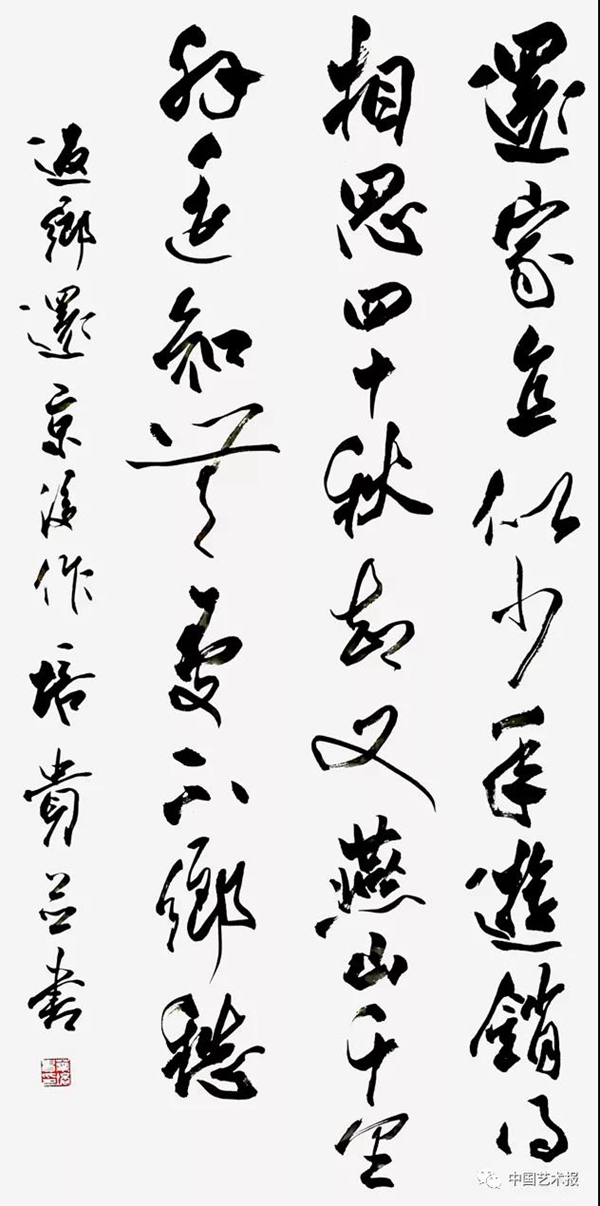 還家直似少年遊銷得
相思四十秋却又燕山千里
外遥知無處不鄉愁
返鄉還京後作培貴並書
中国艺术报